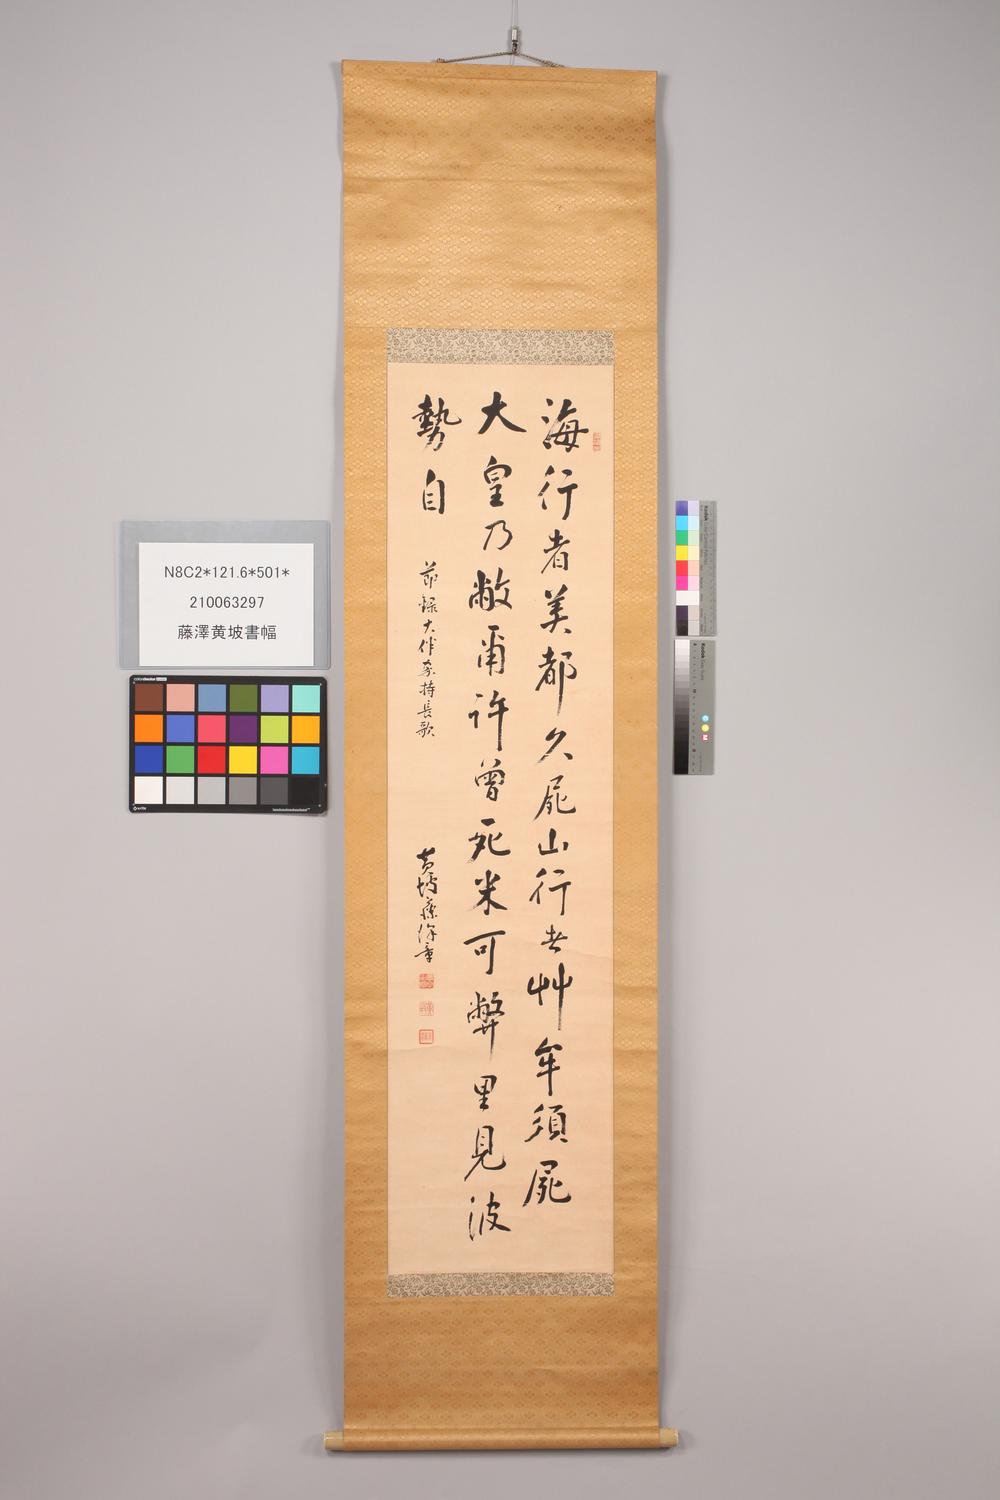 海行者美都久屍山行者艸牟須屍
大皇乃敝甭許曽死米可弊里見波
勢自
節録大伴家持長歌
黄坡藤澤章
N8C2*121.6*501*
210063297
藤澤黄坡書幅